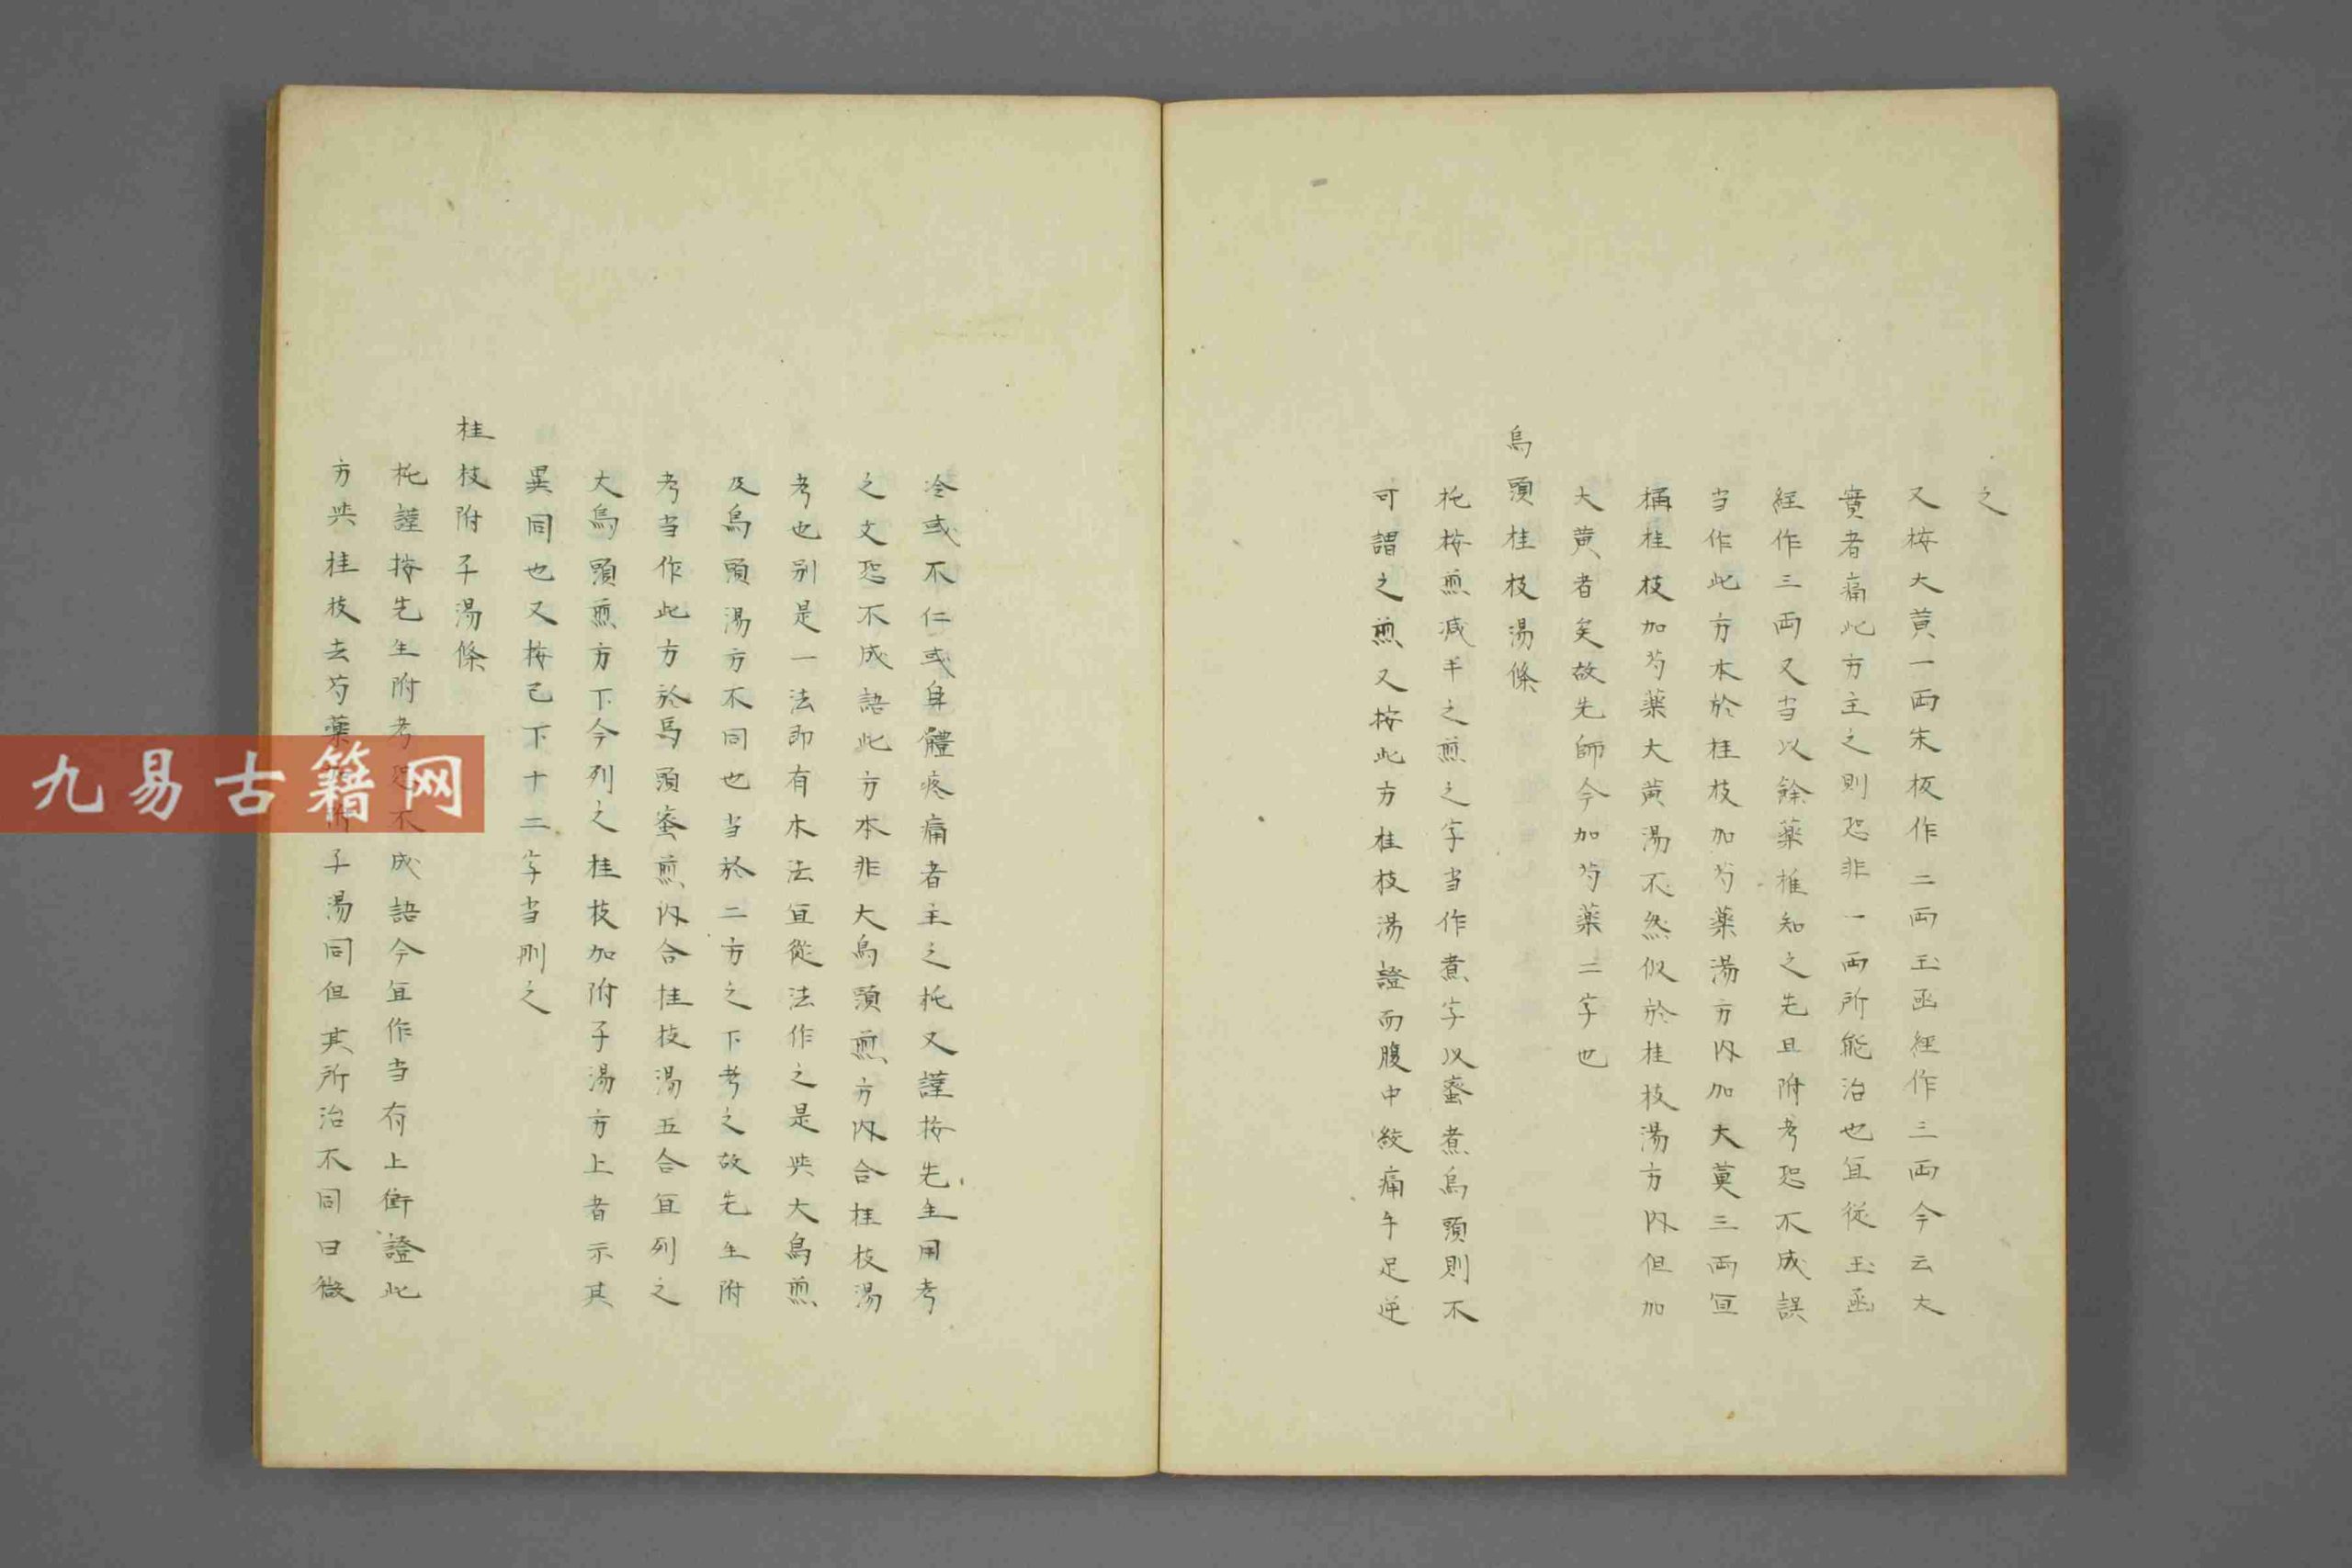 之
又按大黄一兩宋板作二兩玉函經作三兩今云大
實者痛此方主之則恐非一兩所能治也宜從玉函
經作三兩又当以餘藥推知之先且附考恐不成誤
当作此方本於桂枝加芍藥湯方內加大黄三兩宜
稱桂枝加芍藥大黄湯不然似於桂枝湯方內但加
大黄者矣故先師今加芍藥二字也
烏頭桂枝湯條
按煎減半之煎之字当作煮字以蜜煮烏頭則不
可謂之煎又按此方桂枝湯證而腹中絞痛手足逆
冷或不仁或身體疼痛者主之又謹按先生用考
之文恐不成語此方本非大烏頭煎方內合桂枝湯
考也别是一法即有本法宜從法作之是與大烏煎
及烏頭湯方不同也当於二方之下考之故先生附
考当作此方於烏頭蜜煎內合桂枝湯五合宜列之
大烏頭煎方下今列之桂枝加附子湯方上者示其
異同也又按已下十二字当刪之
桂枝附子湯條
謹按先生附考恐不成語今宜作当有上衝證此
方與桂枝去芍藥附子湯同但其所治不同曰徵
九易古籍网